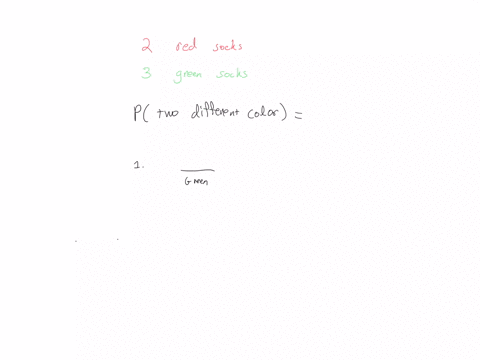 2 red socks
3 green socks
P( two different color) =
1.
Green